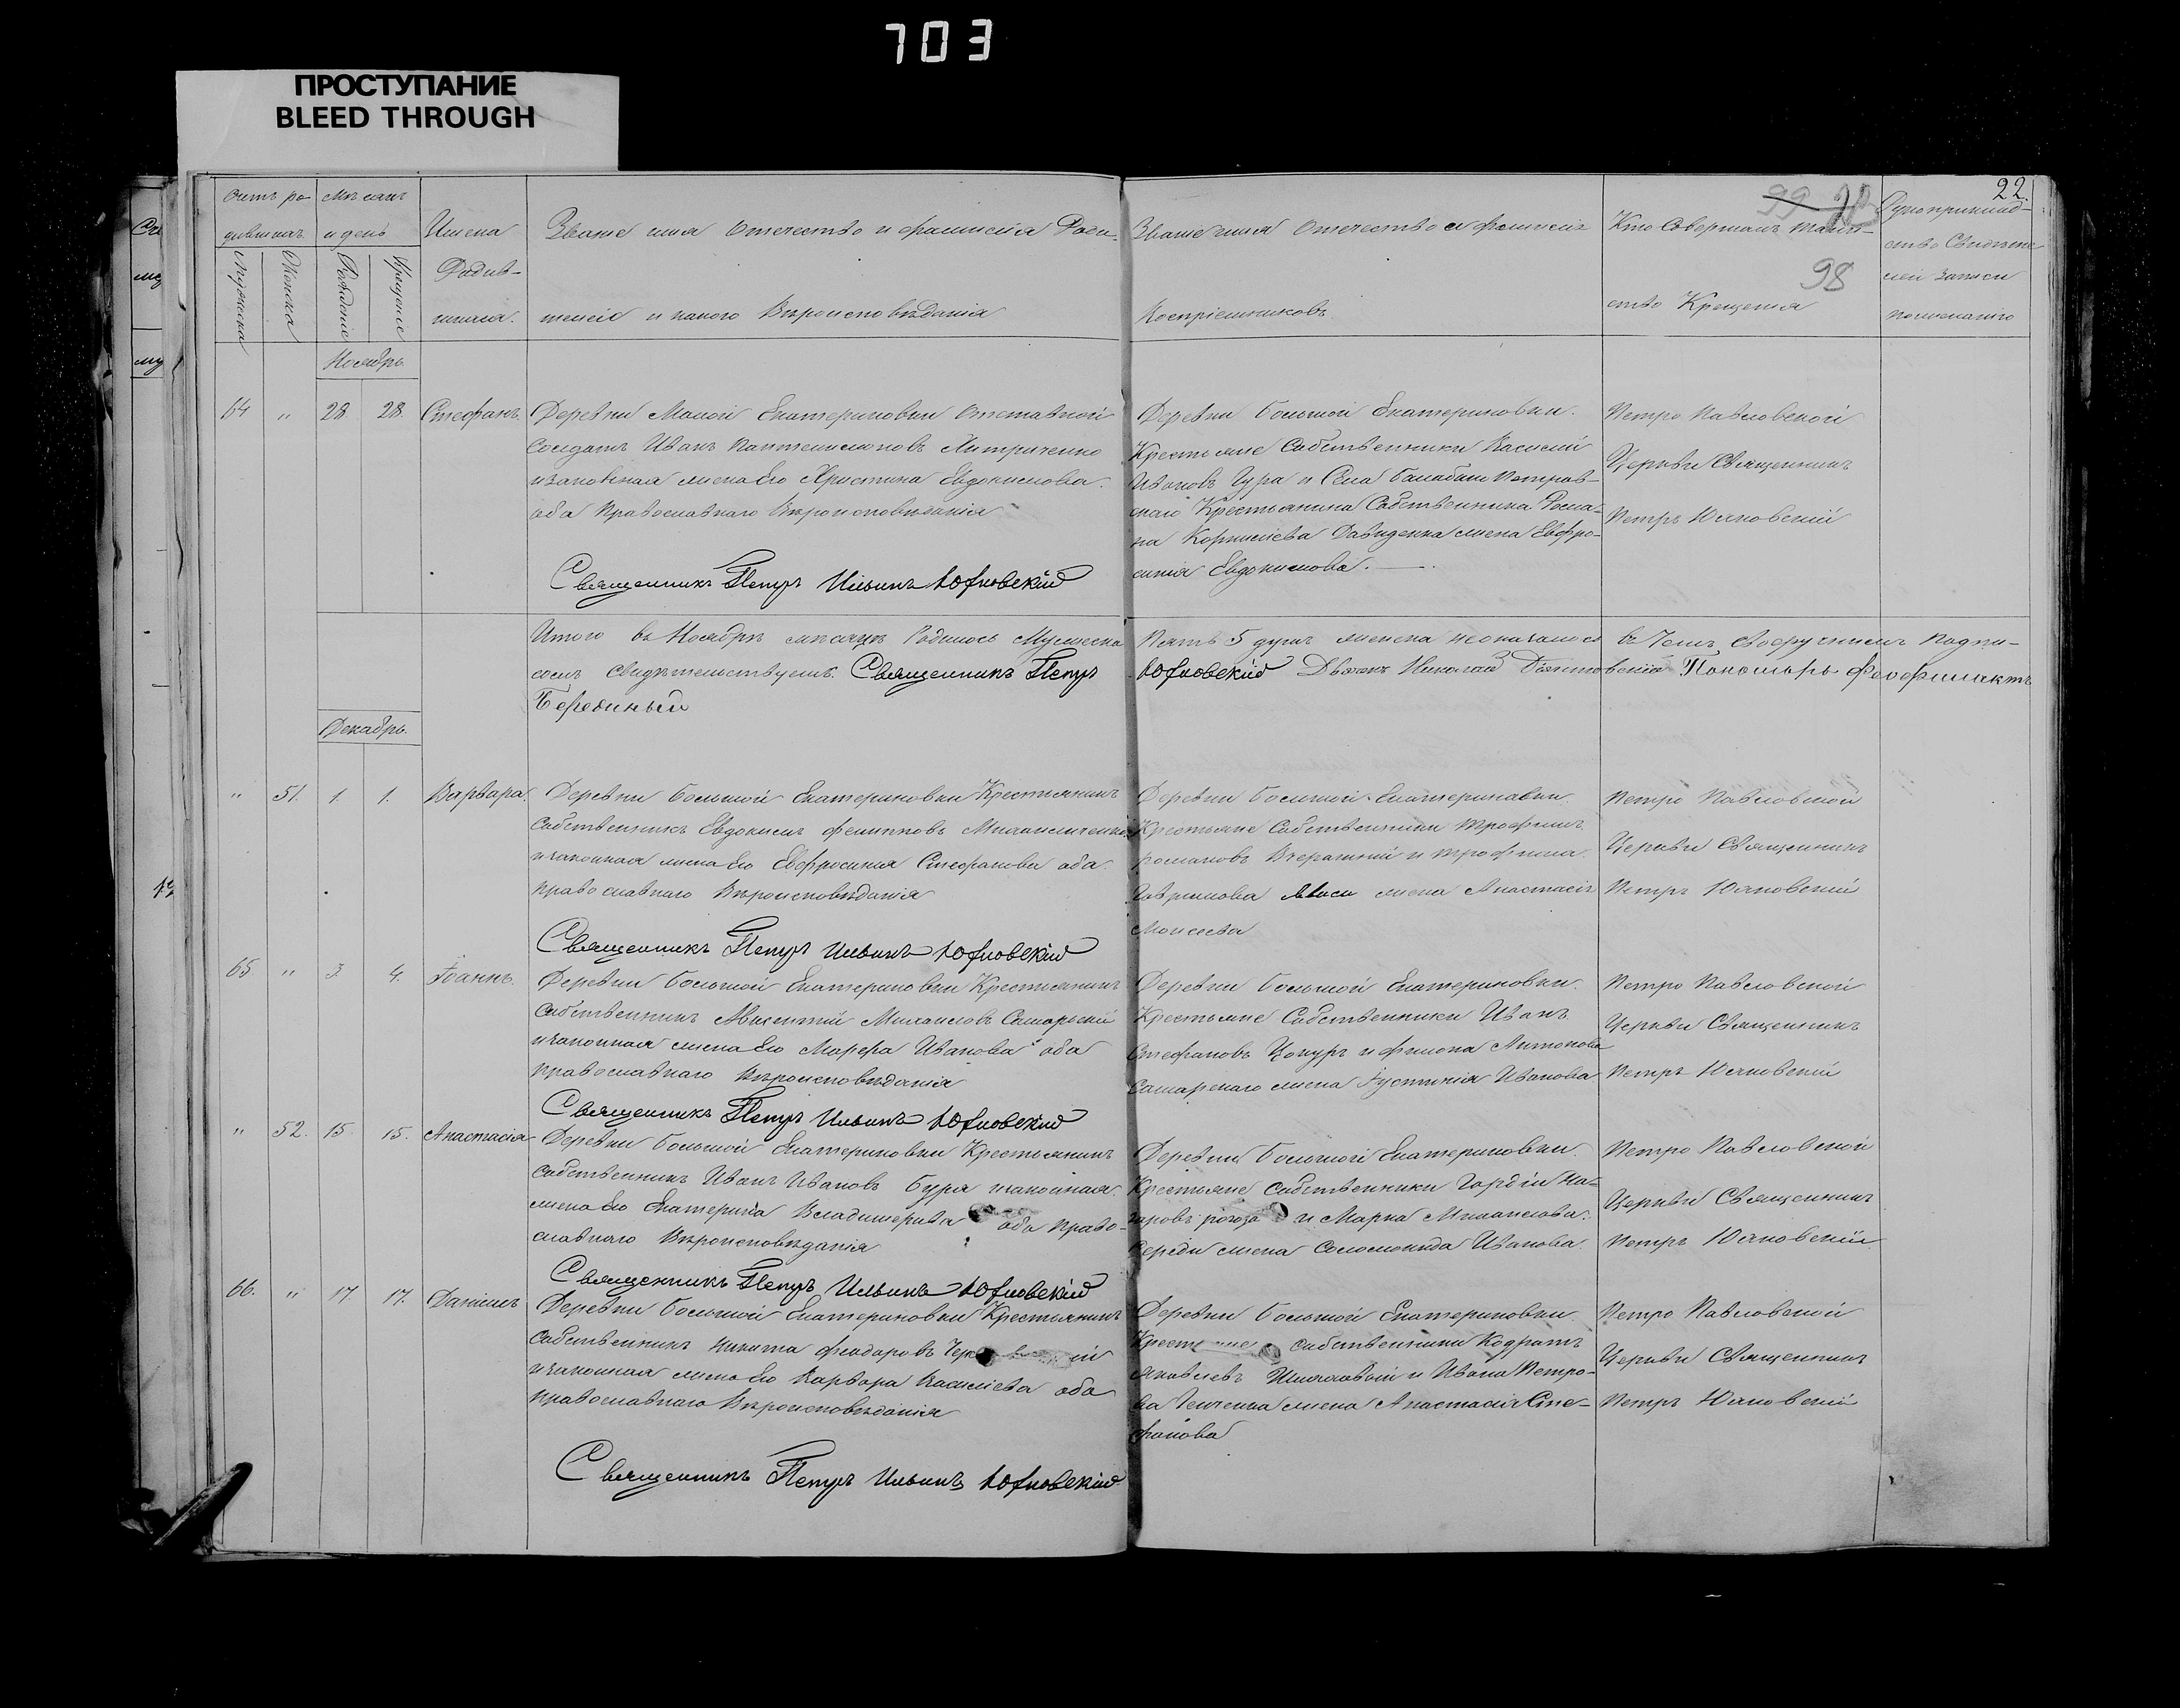 703
ПРОСТУПАНИЕ
BLEED THROUGH
22.
99
98
Счетъ ро-
дившихъ
Мужеска
Женска
Мѣсяцъ
и день
Рожденіе
Крещеніе
Имена
Родив-
шихся.
Званіе имя Отчество и фамилія Роди-
телей и какого Вѣроисповѣданія
Званіе имя Отчество и фамилія
Воспріемниковъ
Кто Совершалъ таин-
ство Крещенія
Рукоприклад-
ство Свидѣте
лей записи
по желанію
Ноябрь
64 " 28 28. Стефанъ.
Деревни Малой Екатериновки Отставной
Солдатъ Иванъ Пантелимоновъ Дитриченко
и законная жена Его Христина Евдокимова.
оба Православнаго Вѣроисповѣданія
Священникъ Петръ Ильинъ Юхновскій
Деревни Большой Екатериновки.
Крестьяне Собственники Василій
Ивановъ Чура и Села Балабино Петров-
скаго Крестьянина Собственника Рома-
на Корнилієва Давиденка жена Евфро-
синія Евдокимова.
Петро Павловской
Церкви Священникъ
Петръ Юхновскій
Итого въ Ноябрѣ мѣсяцѣ Родилось Мужеска Пять 5 душъ женска не оказалось въ Чемъ своеручнымъ подпи-
сомъ свидѣтельствуемъ. Священникъ Петръ Юхновскій Дьякъ Николай Пономарь Феофилактъ
Берединый
Декабрь.
" 51. 1. 1. Варвара.
Деревни Большой Екатериновки Крестьянинъ
Собственникъ Евдокимъ Филиповъ Михайличенко
и законная жена Его Евфросинія Стефанова оба
православнаго Вѣроисповѣданія
Священникъ Петръ Ильинъ Юхновскій
Деревни Большой Екатериновки.
Крестьяне Собственники Трофимъ
Романовъ Вчерашній и Трофима
Гаврилова жена Анастасія
Моисеева
Петро Павловской
Церкви Священникъ
Петръ Юхновскій
65 " 3 4. Іоаннъ.
Деревни Большой Екатериновки Крестьянинъ
Собственникъ Авксентій Михайловъ Самарскій
и законная жена Его Марфа Иванова оба
православнаго Вѣроисповѣданія
Священникъ Петръ Ильинъ Юхновскій
Деревни Большой Екатериновки.
Крестьяне Собственники Иванъ
Стефановъ Цокуръ и Филипа Антонова
Самарскаго жена Іустинія Иванова
Петро Павловской
Церкви Священникъ
Петръ Юхновскій
" 52. 15. 15. Анастасія
Деревни Большой Екатериновки Крестьянинъ
Собственникъ Иванъ Ивановъ Буря и законная
жена Его Екатерина Владимерива оба право-
славнаго Вѣроисповѣданія
Священникъ Петръ Ильинъ Юхновскій
Деревни Большой Екатериновки.
Крестьяне Собственники Гордій На-
заровъ рогоза и Марка Михайлова
Середи жена Соломонида Иванова.
Петро Павловской
Церкви Священникъ
Петръ Юхновскій
66. " 17 17. Даніилъ
Деревни Большой Екатериновки Крестьянинъ
Собственникъ Никита Феодоровъ
и законная жена Его Варвара Василіева оба
православнаго Вѣроисповѣданія
Священникъ Петръ Ильинъ Юхновскій
Деревни Большой Екатериновки
Крестьяне Собственники Кодратъ
Яковлевъ и Ивана Петро-
ва жена Анастасія Сте-
фанова
Петро Павловской
Церкви Священникъ
Петръ Юхновскій